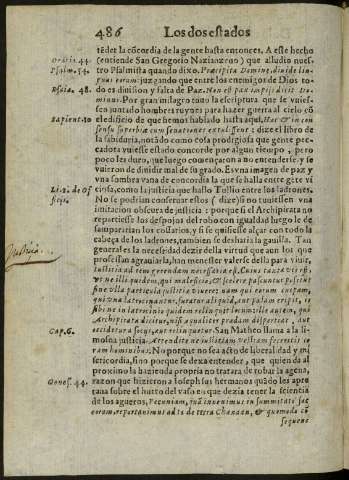 486 Los dos estados
tēder la cōcordia de la gente hasta entonces. A este hecho
Oratio. 44. (entiende San Gregorio Nazianzeno) que alludio nuestro
Psalm. 54. Psalmista quando dixo. Præcipita Domine, diuide linguas
eorum: juzgando que entre los enemigos de Dios todo
Esaiæ. 48. es diuision y falta de Paz. Non est pax impijs dicit Dominus.
Por gran milagro tomo la escriptura que se vuiessen
juntado hombres ruynes para hazer guerra al cielo cō
Sapient. 10 el edificio de que hemos hablado hasta aqui. Hæ & in consensu
superbiæ cum se nationes extulissent: dize el libro de
la sabiduria, notādo como cosa prodigiosa que gente peccadora
vuiesse estado concorde por algun tiempo, pero
poco les duro, que luego començaron a no entenderse, y se
vuieron de diuidir mal de su grado. Es vna imagen de paz y
vna sombra vana de concordia la que se halla entre gēte viciosa,
Li. 2. de Officijs. como la justicia que hallo Tullio entre los ladrones.
No se podrian conseruar estos (dize) si no tuuiessen vna
imitacion obscura de justicia: porque si el Archipirata no
repartiesse los despojos del robo con igualdad luego le desampararian
los cossarios, y si se quisiesse alçar con todo la
cabeça de los ladrones, tambien se desharia la gauilla. Tan
general es la necesidad dezir della virtud que aun los que
Justicia... professan agrauiarla, han menester valerse della para viuir,
Iustitia ad rem gerendam necessaria est. Cuius tanta vis est,
vt ne illi quidem, qui maleficio, & scelere pascuntur possint
sine vlla particula justitiæ viuere; nam qui eorum cuipiam,
qui vna latrocinantur, furatur aliquid, aut palam eripit, is
sibi ne in latrocinio quidem relinquit locum: ille autem, qui
Archipirata dicitur, nisi æqualiter prædam dispertiat, aut
occidetur a socijs, aut relinquetur. San Matheo llama a la limosna
Cap. 6. justicia. Attendite ne justitiam vestram faceretis coram
hominibus. No porque no sea acto de liberalidad y misericordia,
sino porque se dexa entender, que quien da al
proximo la hazienda propria no tratara de robar la agena,
Genes. 44. razon que hizieron a Joseph sus hermanos quādo les apretaua
sobre el hurto del vaso en que dezia tener la sciencia
de los agueros, Pecuniam, quā inuenimus in summitate saccorum,
reportauimus ad te de terra Chanaan, & quomodo cōsequens